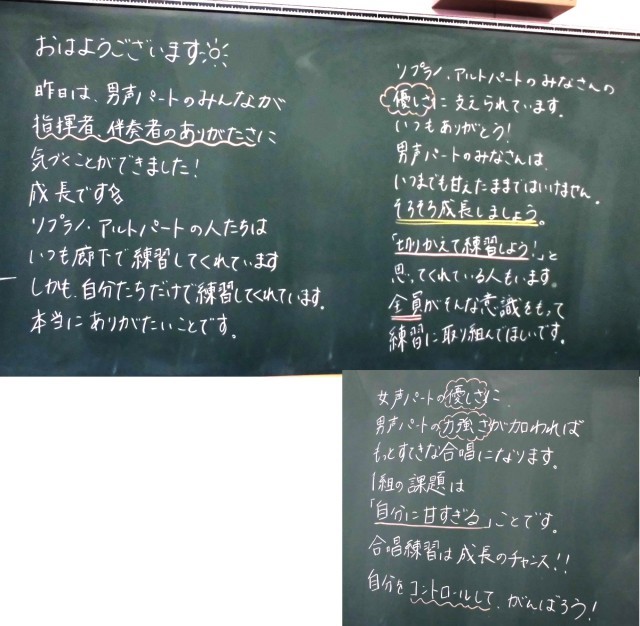 おはようございます
昨日は、男声パートのみんなが
指揮者、伴奏者のありがたさに
気づくことができました!
成長です
ソプラノ・アルトパートの人たちは
いつも廊下で練習してくれています
しかも、自分たちだけで練習してくれています。
本当にありがたいことです。
ソプラノ・アルトパートのみなさんの
優しさに支えられています。
いつもありがとう!
男声パートのみなさんは、
いつまでも甘えたままではいけません。
そろそろ成長しましょう。
「切りかえて練習しよう!」と
思ってくれている人もいます。
全員がそんな意識をもって
練習に取り組んでほしいです。
女声パートの優しさに、
男声パートの力強さが加われば
もっとすてきな合唱になります。
1組の課題は
「自分に甘すぎる」ことです。
合唱練習は成長のチャンス!!
自分をコントロールして、がんばろう!